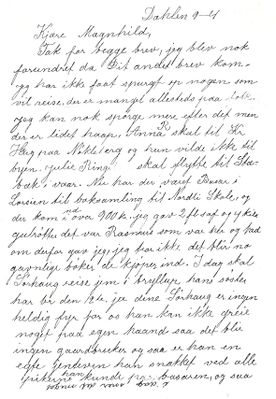 Dahlen 9-4
Kjære Magnhild,
Tak for begge brev, jeg blev nok
forundret da Dit andet brev kom.
jeg har ikke faat spurgt op nogen som
vil reise, der er mangt allesteds paa folk.
jeg kan nok spørge mere efter det men
der er lidet haap, Anna R skal til Kr
Høeg paa Nøkleberg og hun vilde ikke til
byen. Julie Ring skal flytte til Sta-
bæk, vaar. Nu har der været Basar i
til boksamling til Nordre Skole, og
der kom ind over 900 k. jeg gav 2 ft saft og ykke
gulrøtter det var Rasmus som var her og bad
om derfor gav jeg, jeg tror ikke det blir no
gavnlige bøker de kjøper ind. I dag skal
Sørhaug reise hjem i bryllup hans søster
har br den 12te. ja dine Sørhaug er ingen
heldig fyr for os han kan ikke greie
noget paa egen haand saa det blir
ingen gaardbruker og saa er han en
egte jendeven han snakket ved alle
pikerne han kunde paa basaren, og saa